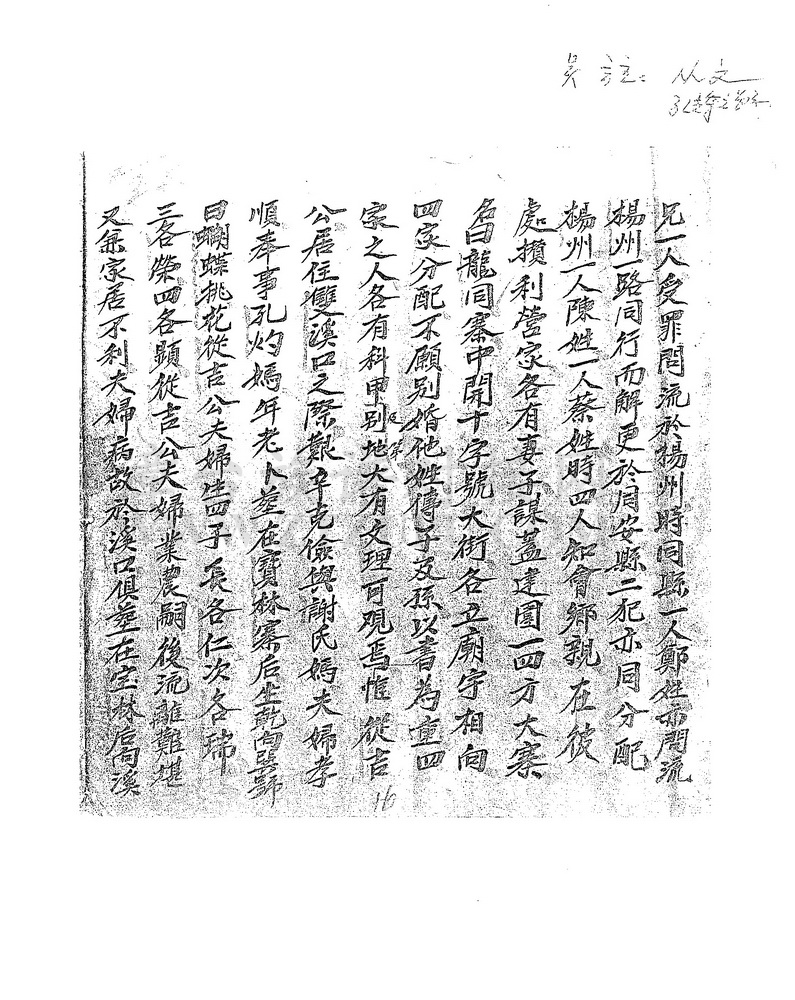 吳 注：从文
兄一人受罪問流於揚州時同縣一人鄭姓亦問流
揚州一路同行而解更於同安縣二犯亦同分配
揚州一人陳姓一人蔡姓時四人知會鄉親在彼
處攢利營家各有妻子謀蓋建圍一四方大寨
名曰龍同寨中開十字號大街各立廟宇相向
四家分配不願別婚他姓傳子及孫以書為重四
家之人各有科甲別地大有文理可观焉惟從吉
公居住雙溪口之際艱辛克儉與謝氏媽夫婦孝
順奉事孔灼媽年老卜塟在寶林寨后坐乾向巽號
曰蝴蝶挑花從吉公夫婦生四子長各仁次各瑞
三各榮四各顯從吉公夫婦業農嗣後流離難堪
又兼家居不利夫婦病故於溪口俱塟在宝林后向溪
16